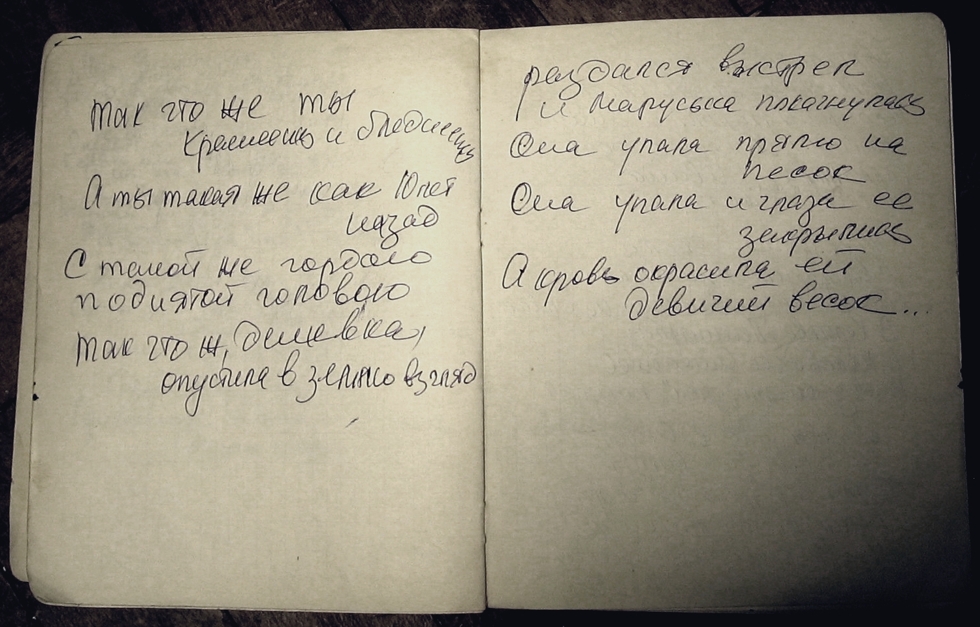 Так что же ты
краснеешь и бледнеешь
А ты такая же как 10 лет
назад
С такой же гордою
поднятой головою
Так что ж, дешевка,
опустила в землю взгляд
раздался выстрел
и Маруська покачнулась
Она упала прямо на
песок
Она упала и глаза ее
закрылись
А кровь окрасила ей
девичий весок...